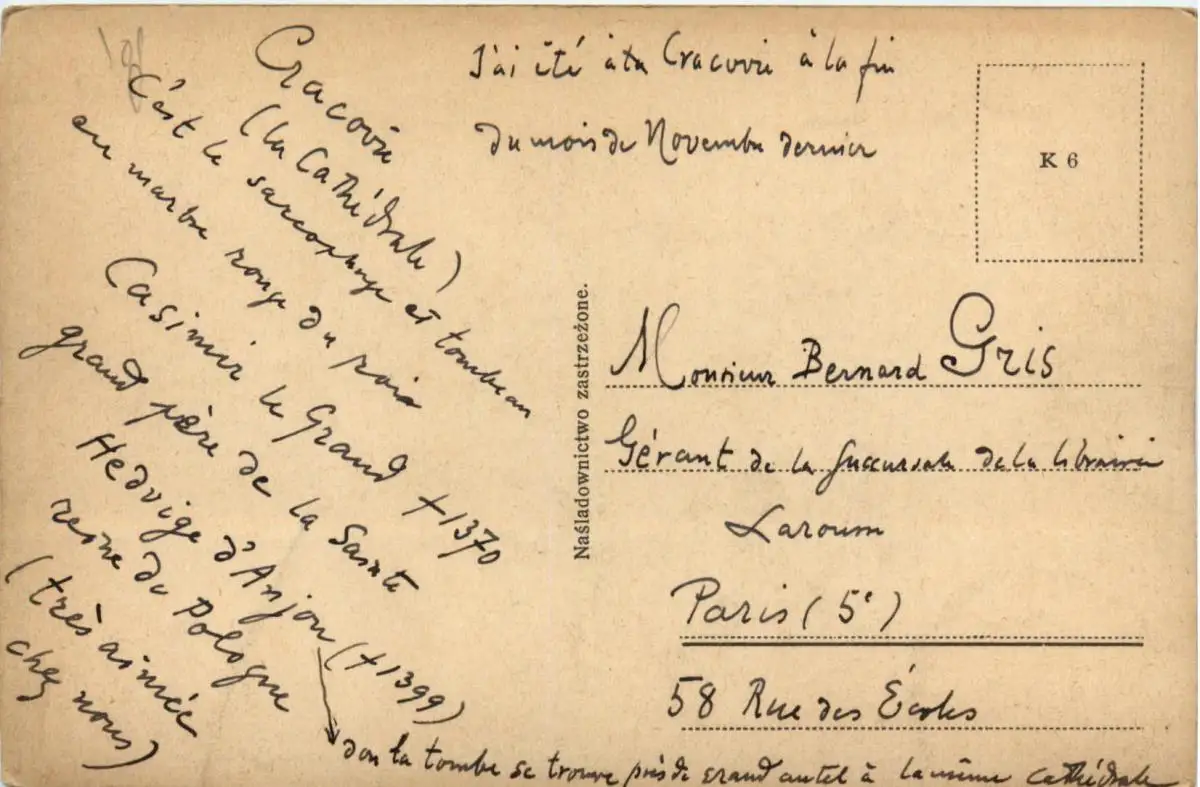 Cracovie
(la Cathédrale)
C'est le sarcophage et tombeau
en marbre rouge du roi
Casimir le Grand +1370
grand père de la Sainte
Hedvige d'Anjou (+1399)
reine de Pologne
(très aimée
chez nous)
don la tombe se trouve près de grand autel à la même cathédrale
J'ai été à Cracovie à la fin
du mois de Novembre dernier
K 6
Naśladownictwo zastrzeżone.
Monsieur Bernard Gris
Gérant de la Succursale de la librairie
Larousse
Paris (5e)
58 Rue des Écoles